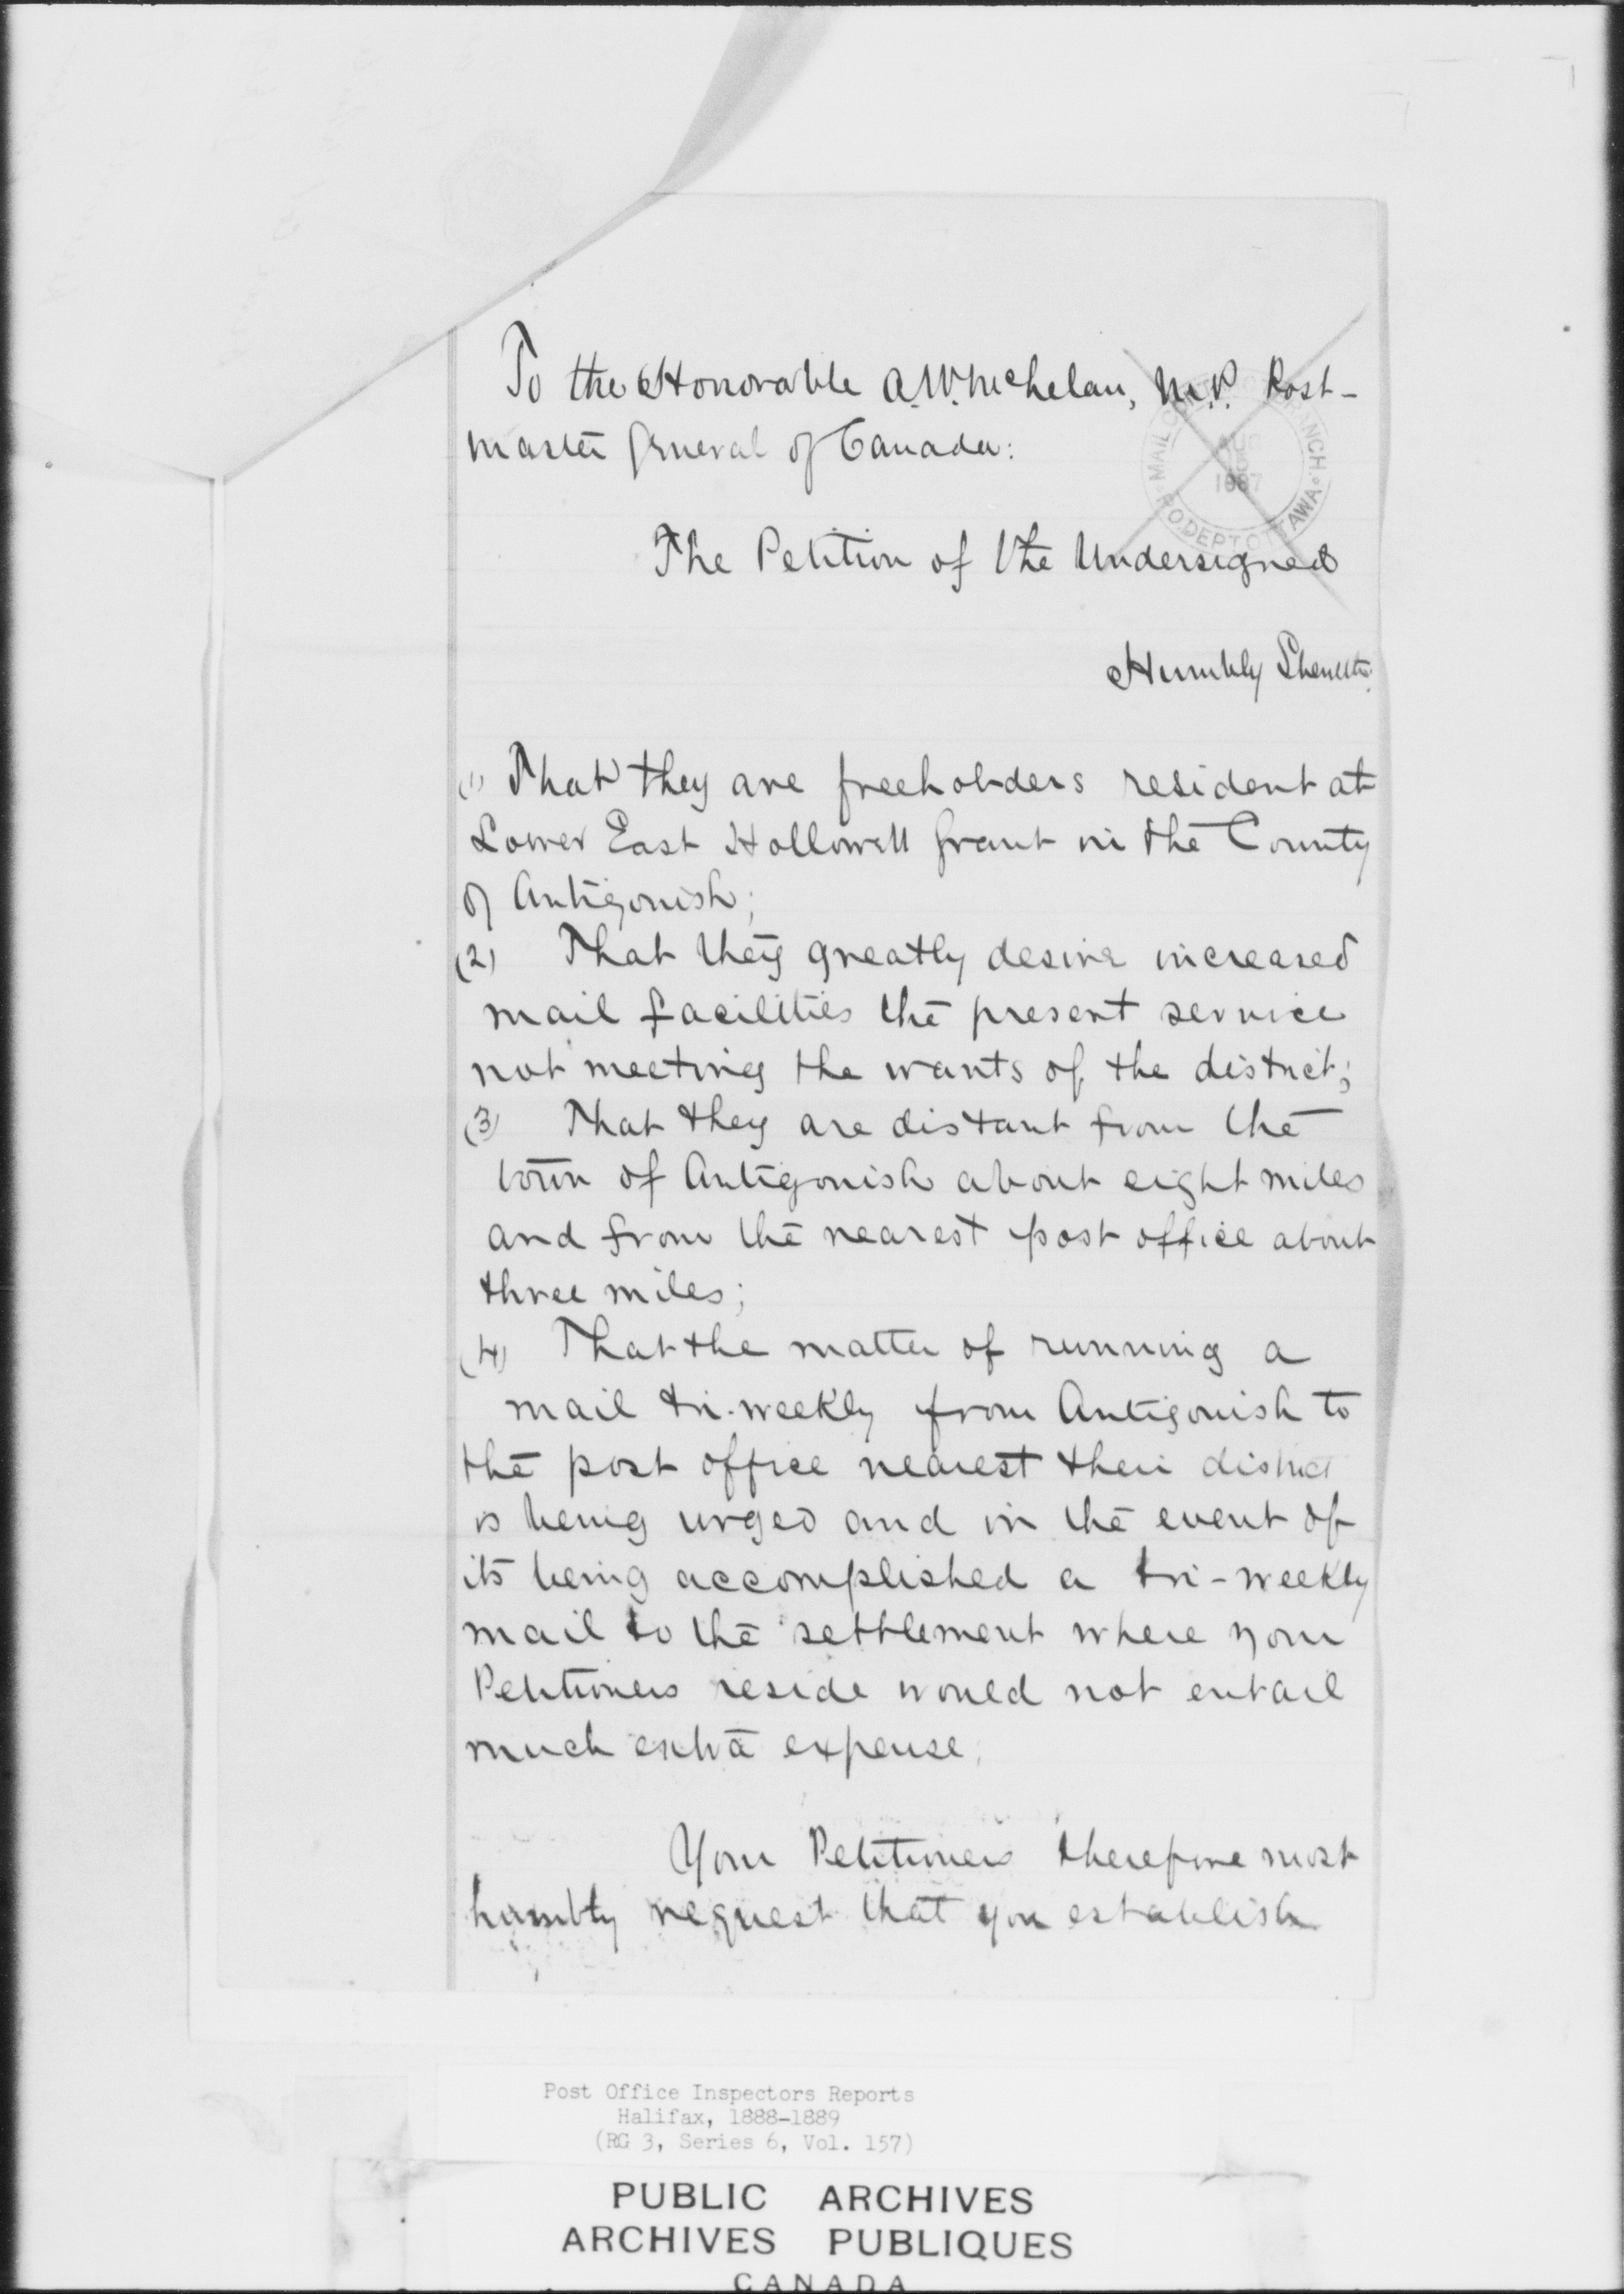 To the Honorable A.W. McLelan, M.P. Post-
master General of Canada:
MAIL BRANCH
AUG
1887
P.O. DEPT OTTAWA
The Petition of the Undersigned
Humbly Sheweth:
(1) That they are freeholders resident at
Lower East Hollowell Grant in the County
of Antigonish;
(2) That they greatly desire increased
mail facilities the present service
not meeting the wants of the district;
(3) That they are distant from the
town of Antigonish about eight miles
and from the nearest post office about
three miles;
(4) That the matter of running a
mail tri-weekly from Antigonish to
the post office nearest their district
is being urged and in the event of
its being accomplished a tri-weekly
mail to the settlement where your
Petitioners reside would not entail
much extra expense.
Your Petitioners therefore most
humbly request that you establish
Post Office Inspectors Reports
Halifax, 1888-1889
(RG 3, Series 6, Vol. 157)
PUBLIC ARCHIVES
ARCHIVES PUBLIQUES
CANADA